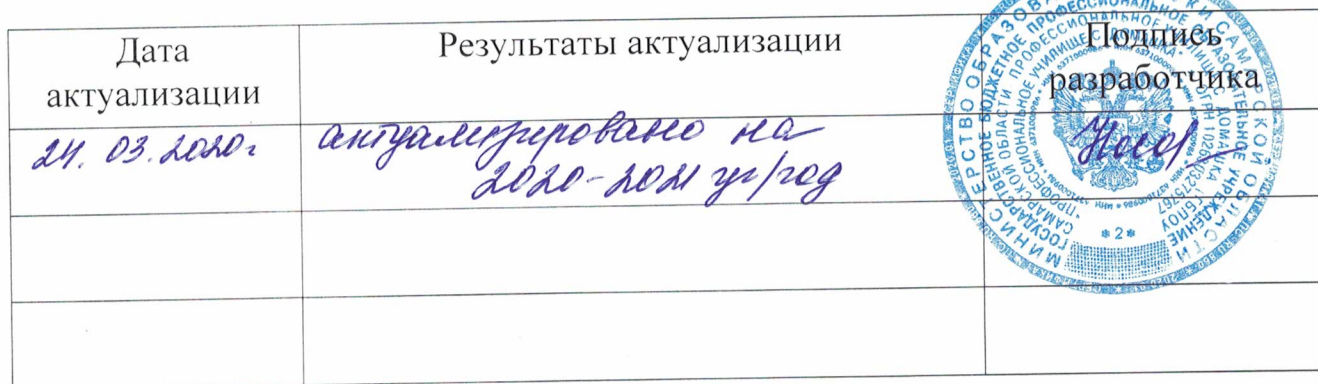 Дата
актуализации
Результаты актуализации
Подпись
разработчика
24. 03. 2020г
актуализировано на
2020-2021 уч/год
МИНИСТЕРСТВО ОБРАЗОВАНИЯ И НАУКИ САМАРСКОЙ ОБЛАСТИ
ГОСУДАРСТВЕННОЕ БЮДЖЕТНОЕ ПРОФЕССИОНАЛЬНОЕ ОБРАЗОВАТЕЛЬНОЕ УЧРЕЖДЕНИЕ
САМАРСКОЙ ОБЛАСТИ
* 2 *